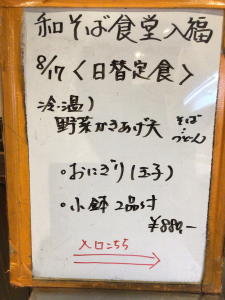 和そば食堂入福
8/17 <日替定食>
冷・温)
野菜かきあげ天 そば
うどん
・おにぎり(玉子)
・小鉢2品付
¥880-
入口こちら